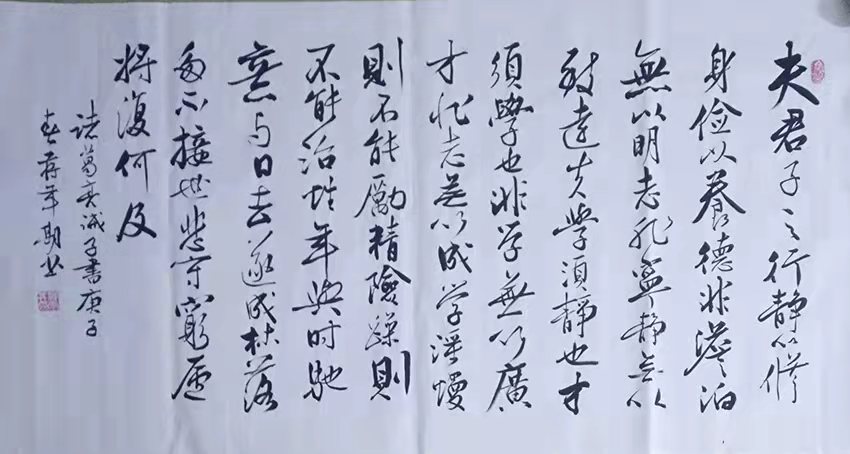 夫君子之行靜以修
身俭以養德非澹泊
無以明志非寧静无以
致遠夫學須靜也才
須學也非学無以廣
才非志无以成学淫慢
則不能勵精險躁則
不能治性年與时馳
意与日去遂成枯落
多不接世悲守窮廬
將復何及
诸葛亮诫子書庚子
春蒋年期书